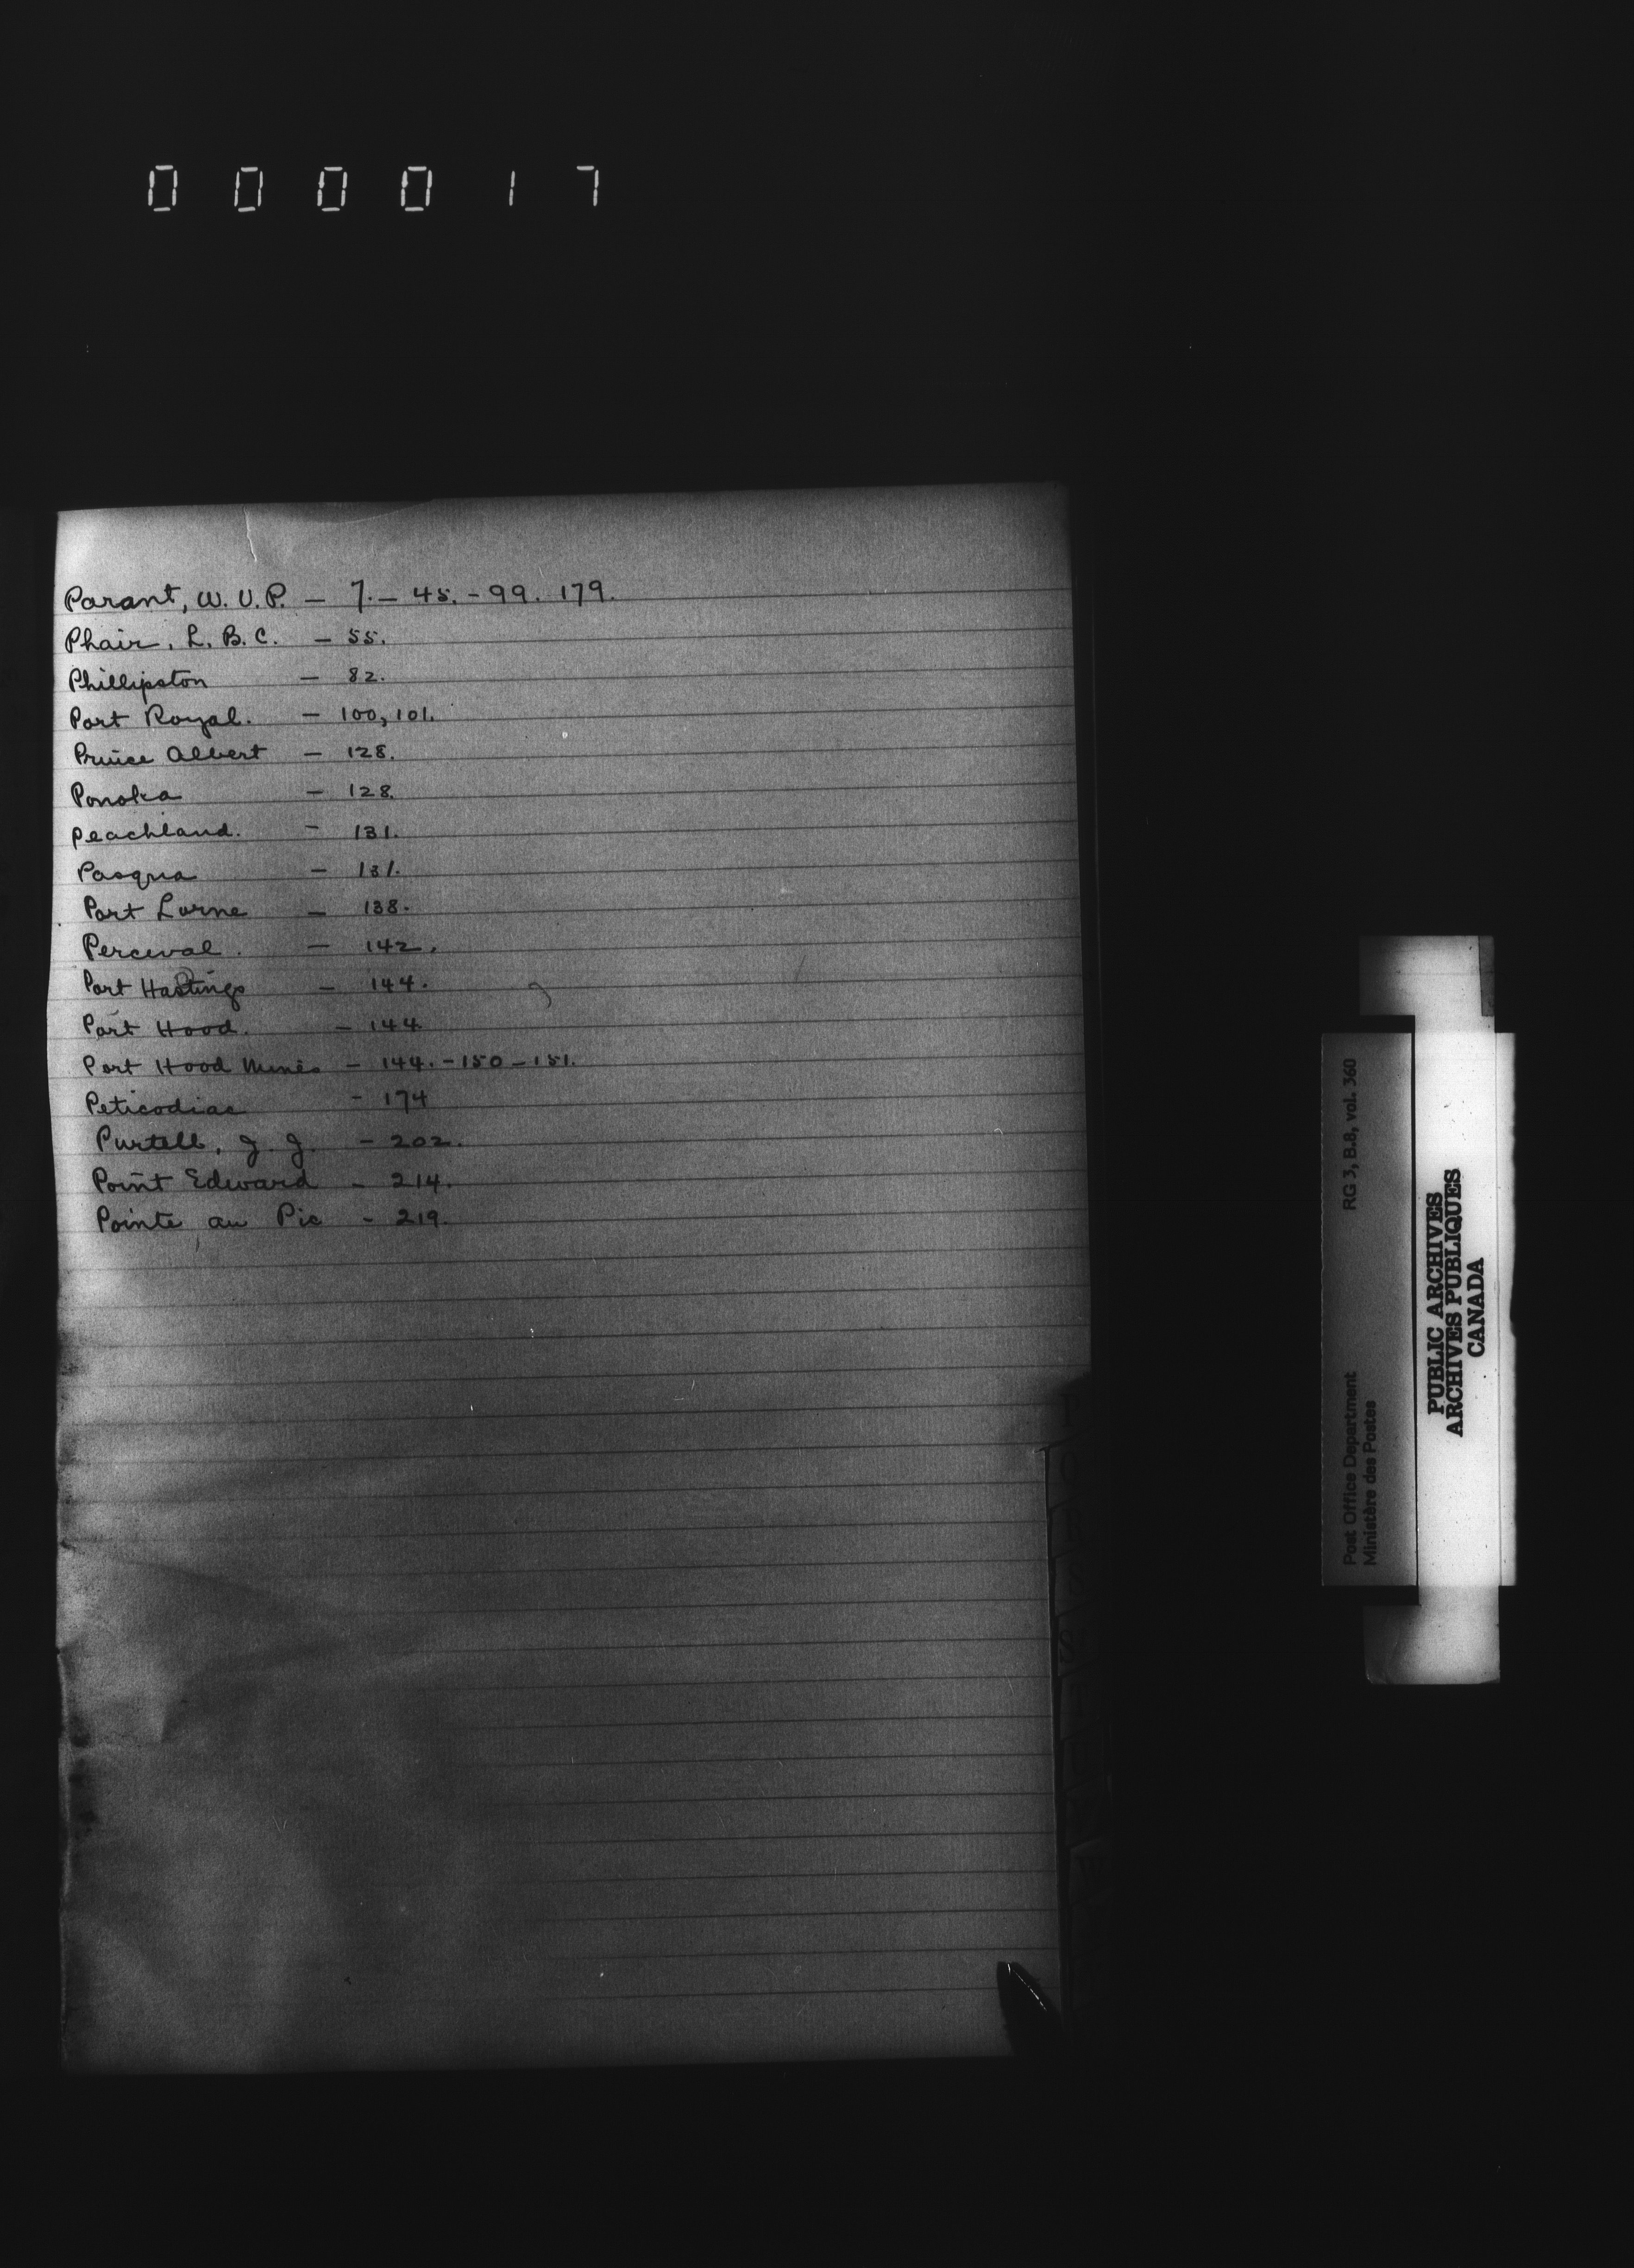 000017
Parant, W. U. P. - 7. - 45. - 99. 179.
Phair, L. B. C. - 55.
Phillipston - 82.
Port Royal. - 100, 101.
Prince Albert - 128.
Ponoka - 128.
Peachland. - 131.
Pasqua - 131.
Port Lorne - 138.
Perceval. - 142.
Port Hastings - 144.
Port Hood. - 144
Port Hood Mines - 144. - 150 - 151.
Peticodiac - 174
Purtell, J. J. - 202.
Point Edward - 214.
Pointe au Pic - 219.
Post Office Department RG 3, B.8, vol. 360
Ministère des Postes
PUBLIC ARCHIVES
ARCHIVES PUBLIQUES
CANADA